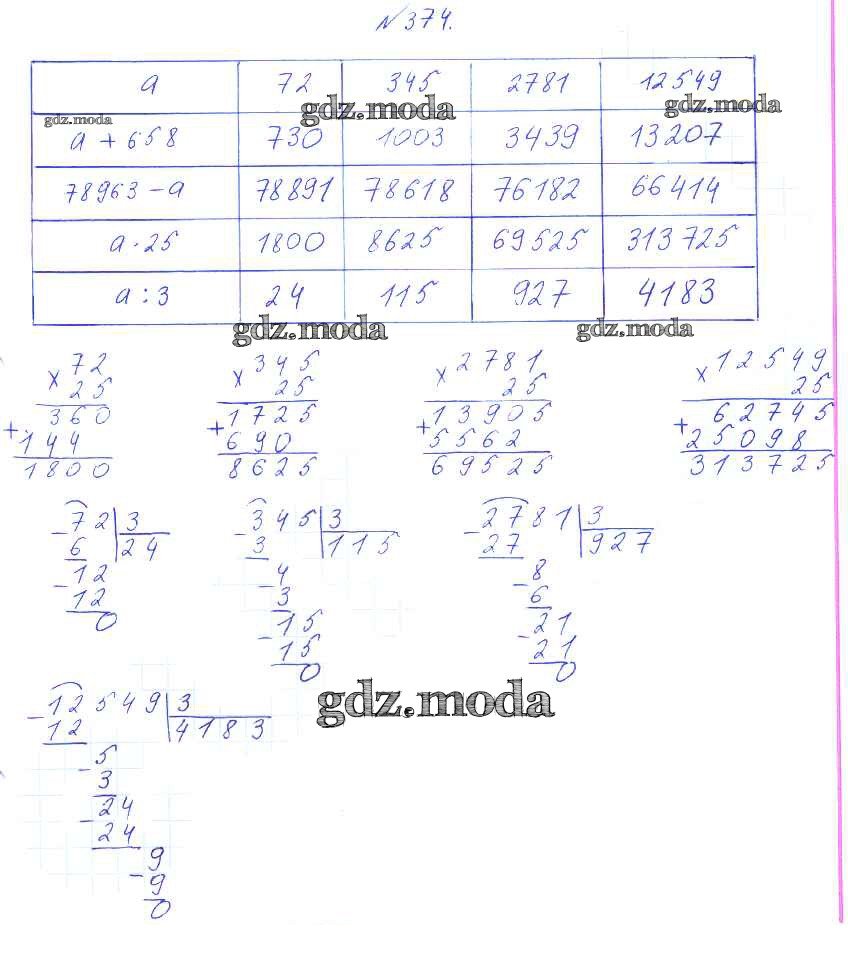 №374.
a 72 345 2781 12549
gdz.moda gdz.moda gdz.moda
a + 658 730 1003 3439 13207
78963 - a 78891 78618 76182 66414
a · 25 1800 8625 69525 313725
a : 3 24 115 927 4183
gdz.moda gdz.moda
× 72 × 345 × 2781 × 12549
25 25 25 25
360 1725 13905 62745
+ 144 + 690 + 5562 + 25098
1800 8625 69525 313725
- 72 3 - 345 3 - 2781 3
6 24 3 115 27 927
- 12 - 4 - 8
12 3 6
0 - 15 - 21
15 21
0 0
gdz.moda
- 12549 3
12 4183
- 5
3
- 24
24
- 9
9
0